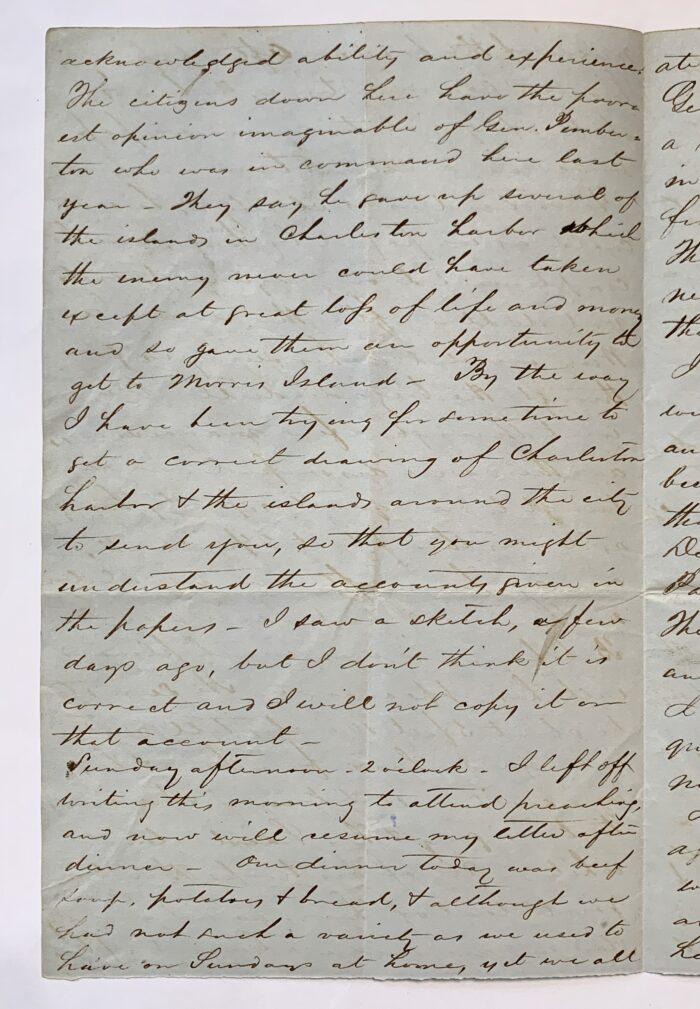 acknowledged ability and experience.
The citizens down here have the poor-
est opinion imaginable of Gen. Pember-
ton who was in command here last
year - They say he gave up several of
the islands in Charleston harbor which
the enemy never could have taken
except at great loss of life and money
and so gave them an opportunity to
get to Morris Island - By the way
I have been trying for some time to
get a correct drawing of Charleston
harbor & the islands around the city
to send you, so that you might
understand the accounts given in
the papers - I saw a sketch, a few
days ago, but I don't think it is
correct and I will not copy it on
that account -
Sunday afternoon - 2 o'clock - I left off
writing this morning to attend preaching,
and now will resume my letter after
dinner - Our dinner today was beef
soup, potatoes & bread, & although we
had not such a variety as we used to
have on Sundays at home, yet we all
ate
a
in
The
I
The